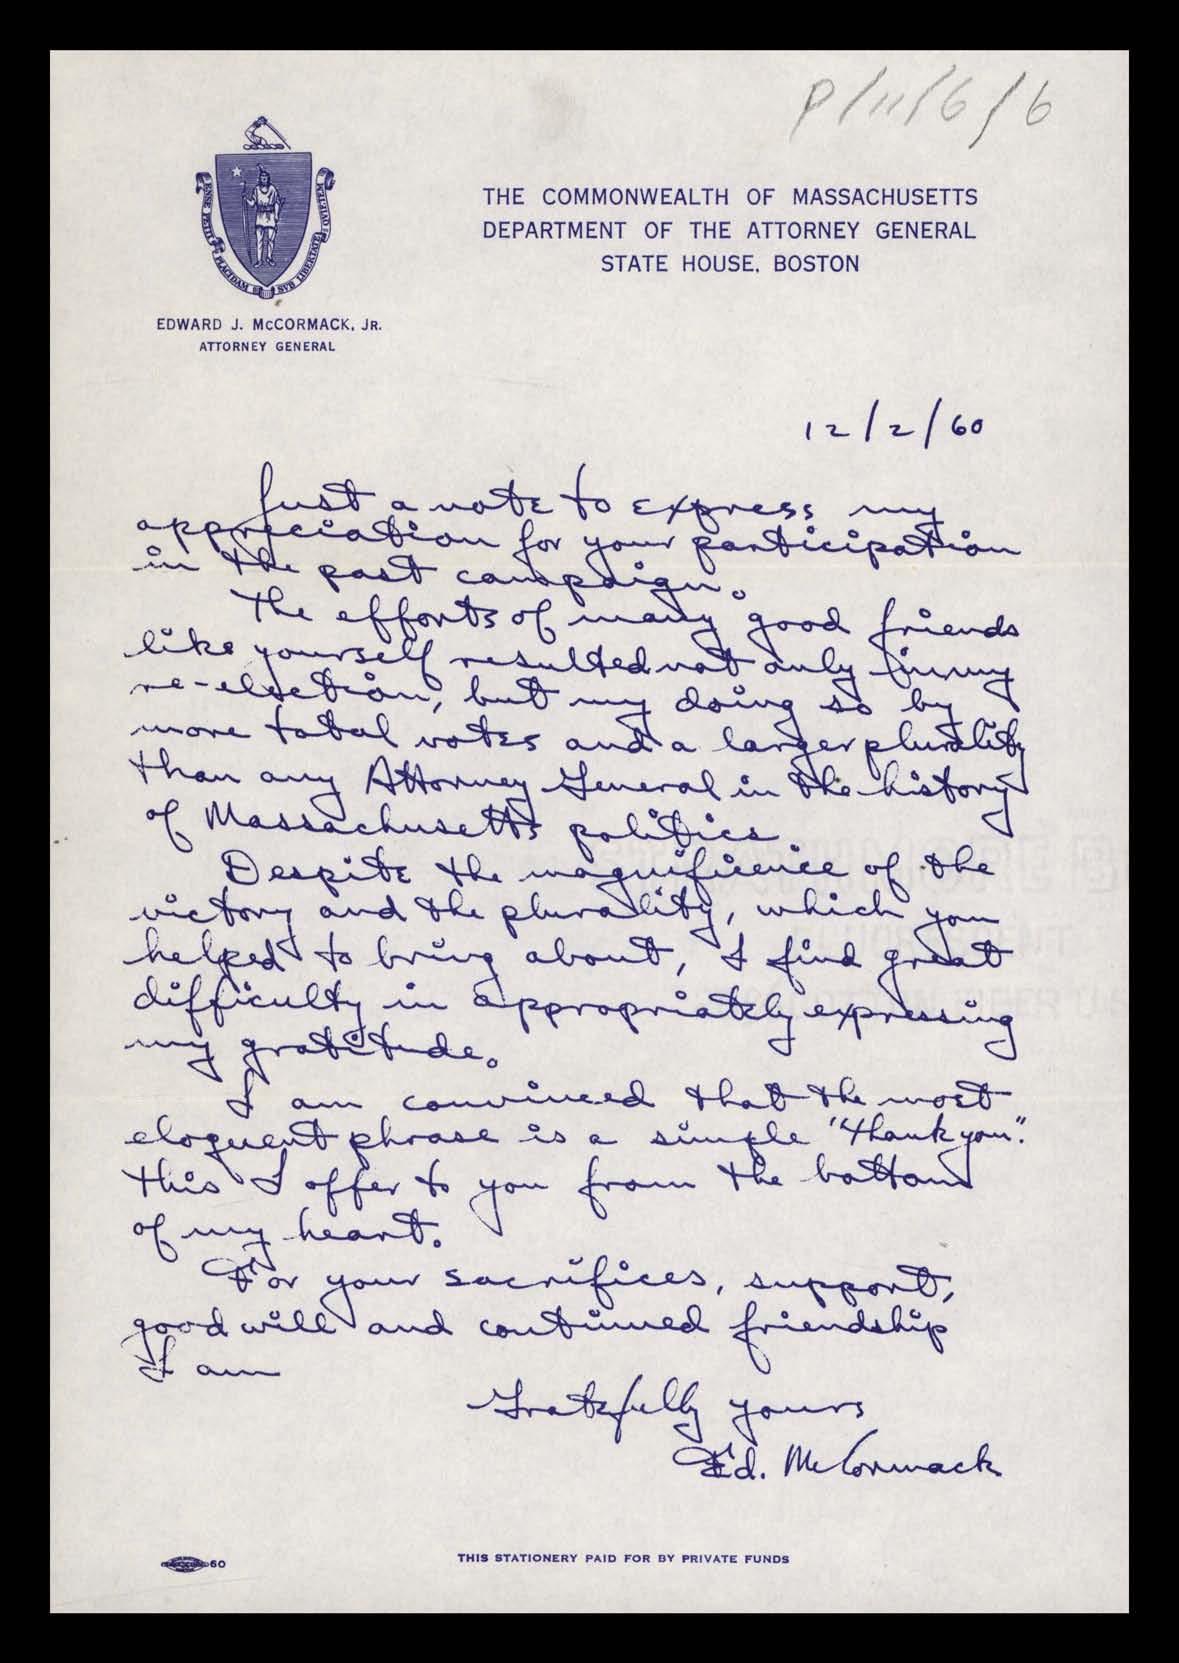 P/11/6/6
THE COMMONWEALTH OF MASSACHUSETTS
DEPARTMENT OF THE ATTORNEY GENERAL
STATE HOUSE, BOSTON
ENSE PETIT PLACIDAM SVB LIBERTATE QVIETEM
EDWARD J. McCORMACK, JR.
ATTORNEY GENERAL
12/2/60
Just a note to express my
appreciation for your participation
in the past campaign.
The efforts of many good friends
like yourself resulted not only in my
re-election, but my doing so by
more total votes and a larger plurality
than any Attorney General in the history
of Massachusetts politics
Despite the magnificence of the
victory and the plurality, which you
helped to bring about, I find great
difficulty in appropriately expressing
my gratitude.
I am convinced that the most
eloquent phrase is a simple "thank you".
This I offer to you from the bottom
of my heart.
For your sacrifices, support,
good will and continued friendship
I am
Gratefully yours
Ed. McCormack
60
THIS STATIONERY PAID FOR BY PRIVATE FUNDS